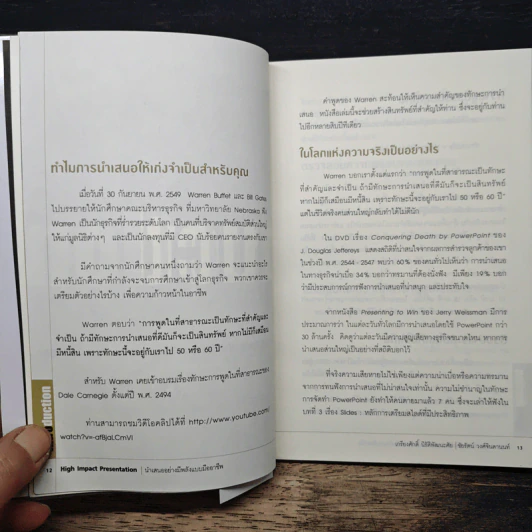 ทำไมการนำเสนอให้เก่งจำเป็นสำหรับคุณ
เมื่อวันที่ 30 กันยายน พ.ศ. 2549 Warren Buffet และ Bill Gates
ไปบรรยายให้นักศึกษาคณะบริหารธุรกิจ ที่มหาวิทยาลัย Nebraska
Warren เป็นนักธุรกิจที่ร่ำรวยระดับโลก เป็นคนที่บริจาคทรัพย์สมบัติส่วนใหญ่
ให้แก่มูลนิธิต่างๆ และเป็นนักลงทุนที่มี CEO นับร้อยคนรายงานตรงกับเขา
มีคำถามจากนักศึกษาคนหนึ่งถามว่า Warren จะแนะนำอะไร
สำหรับนักศึกษาที่กำลังจะจบการศึกษาเข้าสู่โลกธุรกิจ พวกเขาควรจะ
เตรียมตัวอย่างไรบ้าง เพื่อความก้าวหน้าในอาชีพ
Warren ตอบว่า "การพูดในที่สาธารณะเป็นทักษะที่สำคัญและ
จำเป็น ถ้ามีทักษะการนำเสนอที่ดีมันก็จะเป็นสินทรัพย์ หากไม่มีก็เสมือน
มีหนี้สิน เพราะทักษะนี้จะอยู่กับเราไป 50 หรือ 60 ปี"
สำหรับ Warren เคยเข้าอบรมเรื่องทักษะการพูดในที่สาธารณะของ
Dale Carnegie ตั้งแต่ปี พ.ศ. 2494
ท่านสามารถชมวิดีโอคลิปได้ที่ http://www.youtube.com/
duction
12 High Impact Presentation | นำเสนออย่างมีพลังแบบมืออาชีพ
คำพูดของ Warren สะท้อนให้เห็นความสำคัญของทักษะการนำ
เสนอ หนังสือเล่มนี้จะช่วยสร้างสินทรัพย์ที่สำคัญให้ท่าน ซึ่งจะอยู่กับท่าน
ไปอีกหลายสิบปีทีเดียว
ในโลกแห่งความจริงเป็นอย่างไร
Warren บอกเราตั้งแต่แรกว่า "การพูดในที่สาธารณะเป็นทักษะ
ที่สำคัญและจำเป็น ถ้ามีทักษะการนำเสนอที่ดีมันก็จะเป็นสินทรัพย์
หากไม่มีก็เสมือนมีหนี้สิน เพราะทักษะนี้จะอยู่กับเราไป 50 หรือ 60 ปี"
แต่ในชีวิตจริงคนส่วนใหญ่กลับทำได้ไม่ดีนัก
ใน DVD เรื่อง Conquering Death by PowerPoint ของ
J. Douglas Jefferys แสดงสถิติที่น่าสนใจจากผลการสำรวจลูกค้าของเขา
ในช่วงปี พ.ศ. 2544 - 2547 พบว่า 60% ของคนทั่วไปเห็นว่า การนำเสนอ
ในทางธุรกิจน่าเบื่อ 34% บอกว่าทรมานที่ต้องนั่งฟัง มีเพียง 19% บอก
ว่ามีประสบการณ์การฟังการนำเสนอที่น่าสนุก และประทับใจ
จากหนังสือ Presenting to Win ของ Jerry Weissman มีการ
ประมาณการว่า ในแต่ละวันทั่วโลกมีการนำเสนอโดยใช้ PowerPoint กว่า
30 ล้านครั้ง คิดดูว่าแต่ละวันมีความสูญเสียทางธุรกิจขนาดไหน หากการ
นำเสนอส่วนใหญ่เป็นอย่างที่สถิติบอกไว้
ที่จริงความเสียหายไม่ใช่เพียงแค่ความน่าเบื่อหรือความทรมาน
จากการทนฟังการนำเสนอที่ไม่น่าสนใจเท่านั้น ความไม่ชำนาญในทักษะ
การจัดทำ PowerPoint ยังทำให้คนตายมาแล้ว 7 คน ซึ่งจะเล่าให้ฟังใน
บทที่ 3 เรื่อง Slides : หลักการเตรียมสไลด์ที่มีประสิทธิภาพ
13